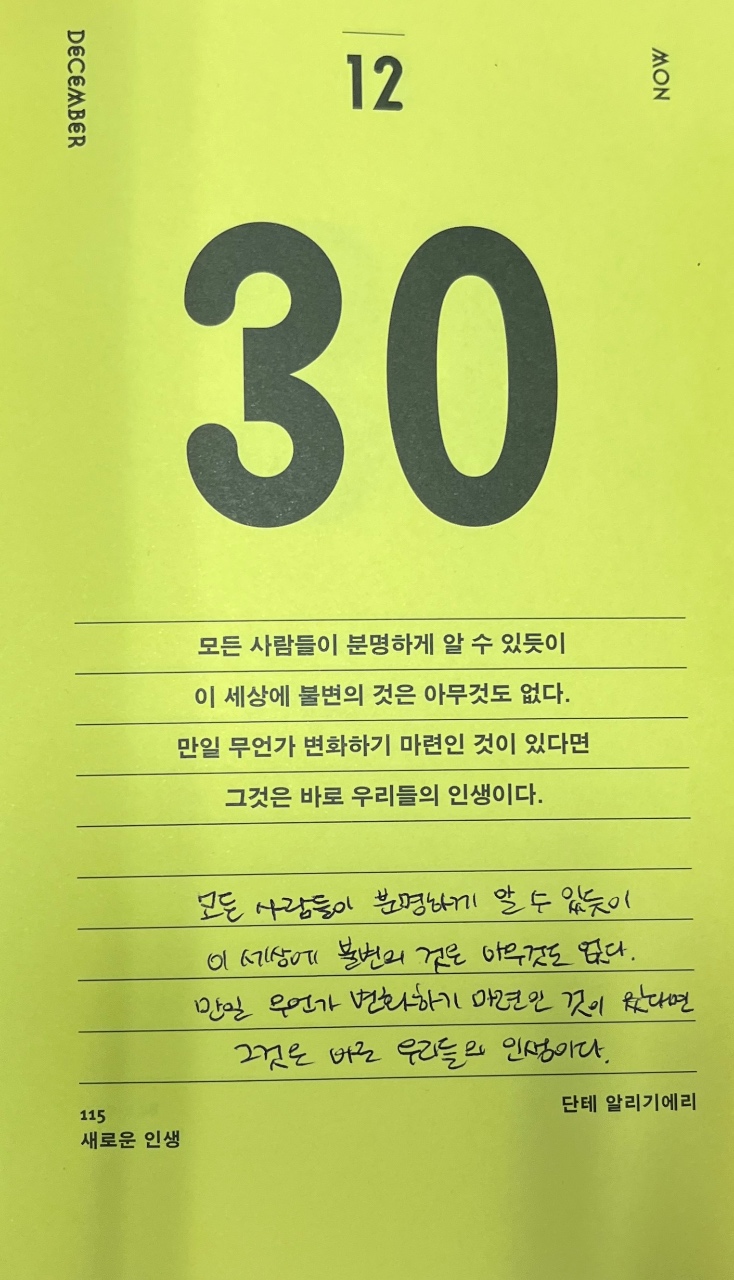 DECEMBER
12
MON
30
모든 사람들이 분명하게 알 수 있듯이
이 세상에 불변의 것은 아무것도 없다.
만일 무언가 변화하기 마련인 것이 있다면
그것은 바로 우리들의 인생이다.
모든 사람들이 분명하게 알 수 있듯이
이 세상에 불변의 것은 아무것도 없다.
만일 무언가 변화하기 마련인 것이 있다면
그것은 바로 우리들의 인생이다.
115
새로운 인생
단테 알리기에리